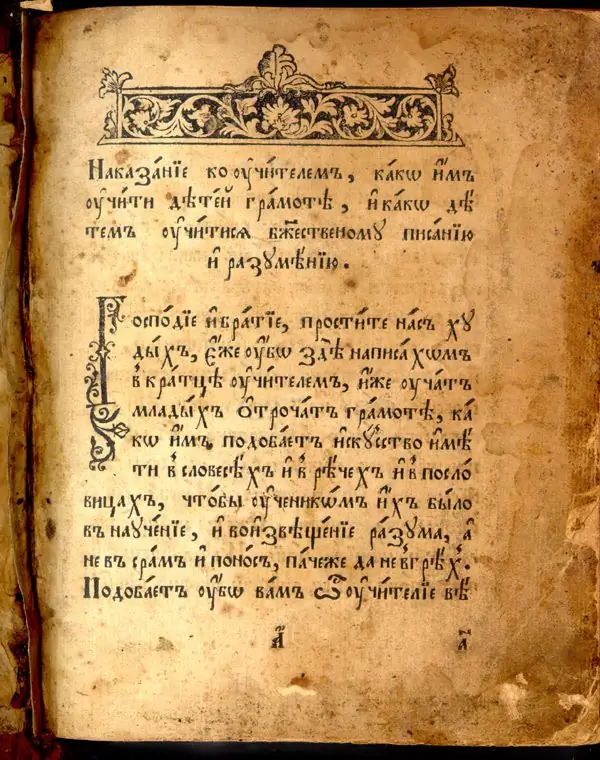 Наказа́нїе ко ᲂу҆чи́телемъ, ка́кѡ и҆̀мъ
ᲂу҆чи́ти дѣте́й гра́мотѣ, и҆ ка́кѡ дѣ́
темъ ᲂу҆чи́тисѧ бж҃е́ственому писа́нїю
и҆ разꙋмѣ́нїю.
Госпо́дїе и҆ бра́тїе, прости́те на́съ хꙋ
ды́хъ, є҆́же ᲂу҆́бѡ здѣ̀ написа́хѡмъ
в кра́тцѣ ᲂу҆чи́телемъ, и҆́же ᲂу҆́чатъ
млады́хъ ѻ҆́трочатъ гра́мотѣ, ка́
кѡ и҆̀мъ подоба́етъ и҆скꙋ́ство и҆мѣ́
ти в словесѣ́хъ и҆ в рѣ́чехъ и҆ в посло́
вицахъ, что́бы ᲂу҆ченикѡ́мъ и҆́хъ бы́ло
въ наꙋче́нїе, и҆ во и҆звѣще́нїе ра́зꙋма, а҆
не въ сра́мъ и҆ поно́съ, па́чеже да не в грѣ́хъ.
Подоба́етъ ᲂу҆́бѡ ва́мъ ѽ ᲂу҆чи́телїе вѣ́
а҃
а҃